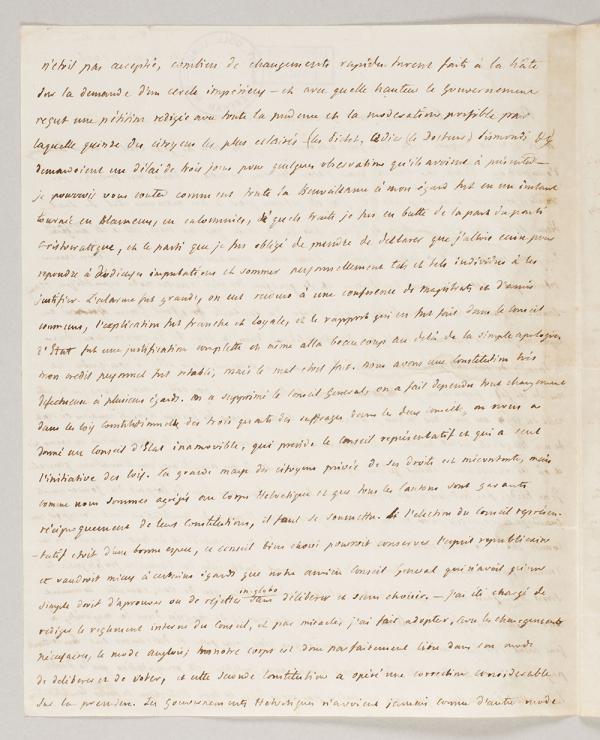 n'étoit pas acceptée, combien de changements rapides furent faits à la hâte
sur la demande d'un cercle impérieux — et avec quelle hauteur le Gouvernement
reçut une pétition redigée avec toute la prudence et la moderation possible par
laquelle quinze des citoyens les plus eclairés (les Pictet, Odier (le Docteur) Sismondi &c
demandoient une délai de trois jours pour quelques observations qu'ils avoient à présenter —
je pourrois vous conter comment toute la bienveillance à mon égard fut en un instant
tournée en blameurs, en calomnies, à quels traits je fus en butte de la part du parti
aristocratique, et le parti que je fus obligé de prendre de declarer que j'allois écrire pour
repondre à d'odieuses imputations et sommer personnellement tels et tels individus à les
justifier. L'alarme fut grande, on eut recours à une conference de magistrats et d'amis
communs, l'explication fut franche et loyale, et le rapport qui en fut fait dans le Conseil
d'Etat fut une justification complette et même alla beaucoup au delà de la simple apologie,
mon credit personnel fut rétabli, mais le mal etoit fait. nous avons une Constitution très
defectueuse à plusieurs égards. on a supprimé le Conseil General, on a fait dependre tout changement
dans les loix Constitutionnelles des trois quarts des suffrages dans les deux Conseils, on nous a
donné un Conseil d'Etat inamovible, qui preside le Conseil représentatif et qui a seul
l'initiative des loix. La grande masse des citoyens privée de ses droits est mécontente, mais
comme nous sommes agrégés au Corps Helvetique et que tous les Cantons sont garants
réciproquement de leurs Constitutions, il faut se soumettre. Si l'election du Conseil représen-
-tatif etoit d'une bonne espece, ce conseil bien choisi pourroit conserver l'esprit republicain
et vaudroit mieux à certains égards que notre ancien Conseil General qui n'avoit qu'un
simple droit d'approuver ou de rejetter in globo sans déliberer et sans choisir. — J'ai été chargé de
rediger le reglement interne du Conseil, et par miracle, j'ai fait adopter, avec les changements
nécessaires, le mode anglois; notre corps est donc parfaitement libre dans son mode
de déliberer et de voter, et cette seconde Constitution a opéré une correction considerable
sur la premiere. Les Gouvernements Helvetiques n'avoient jamais connu d'autre mode